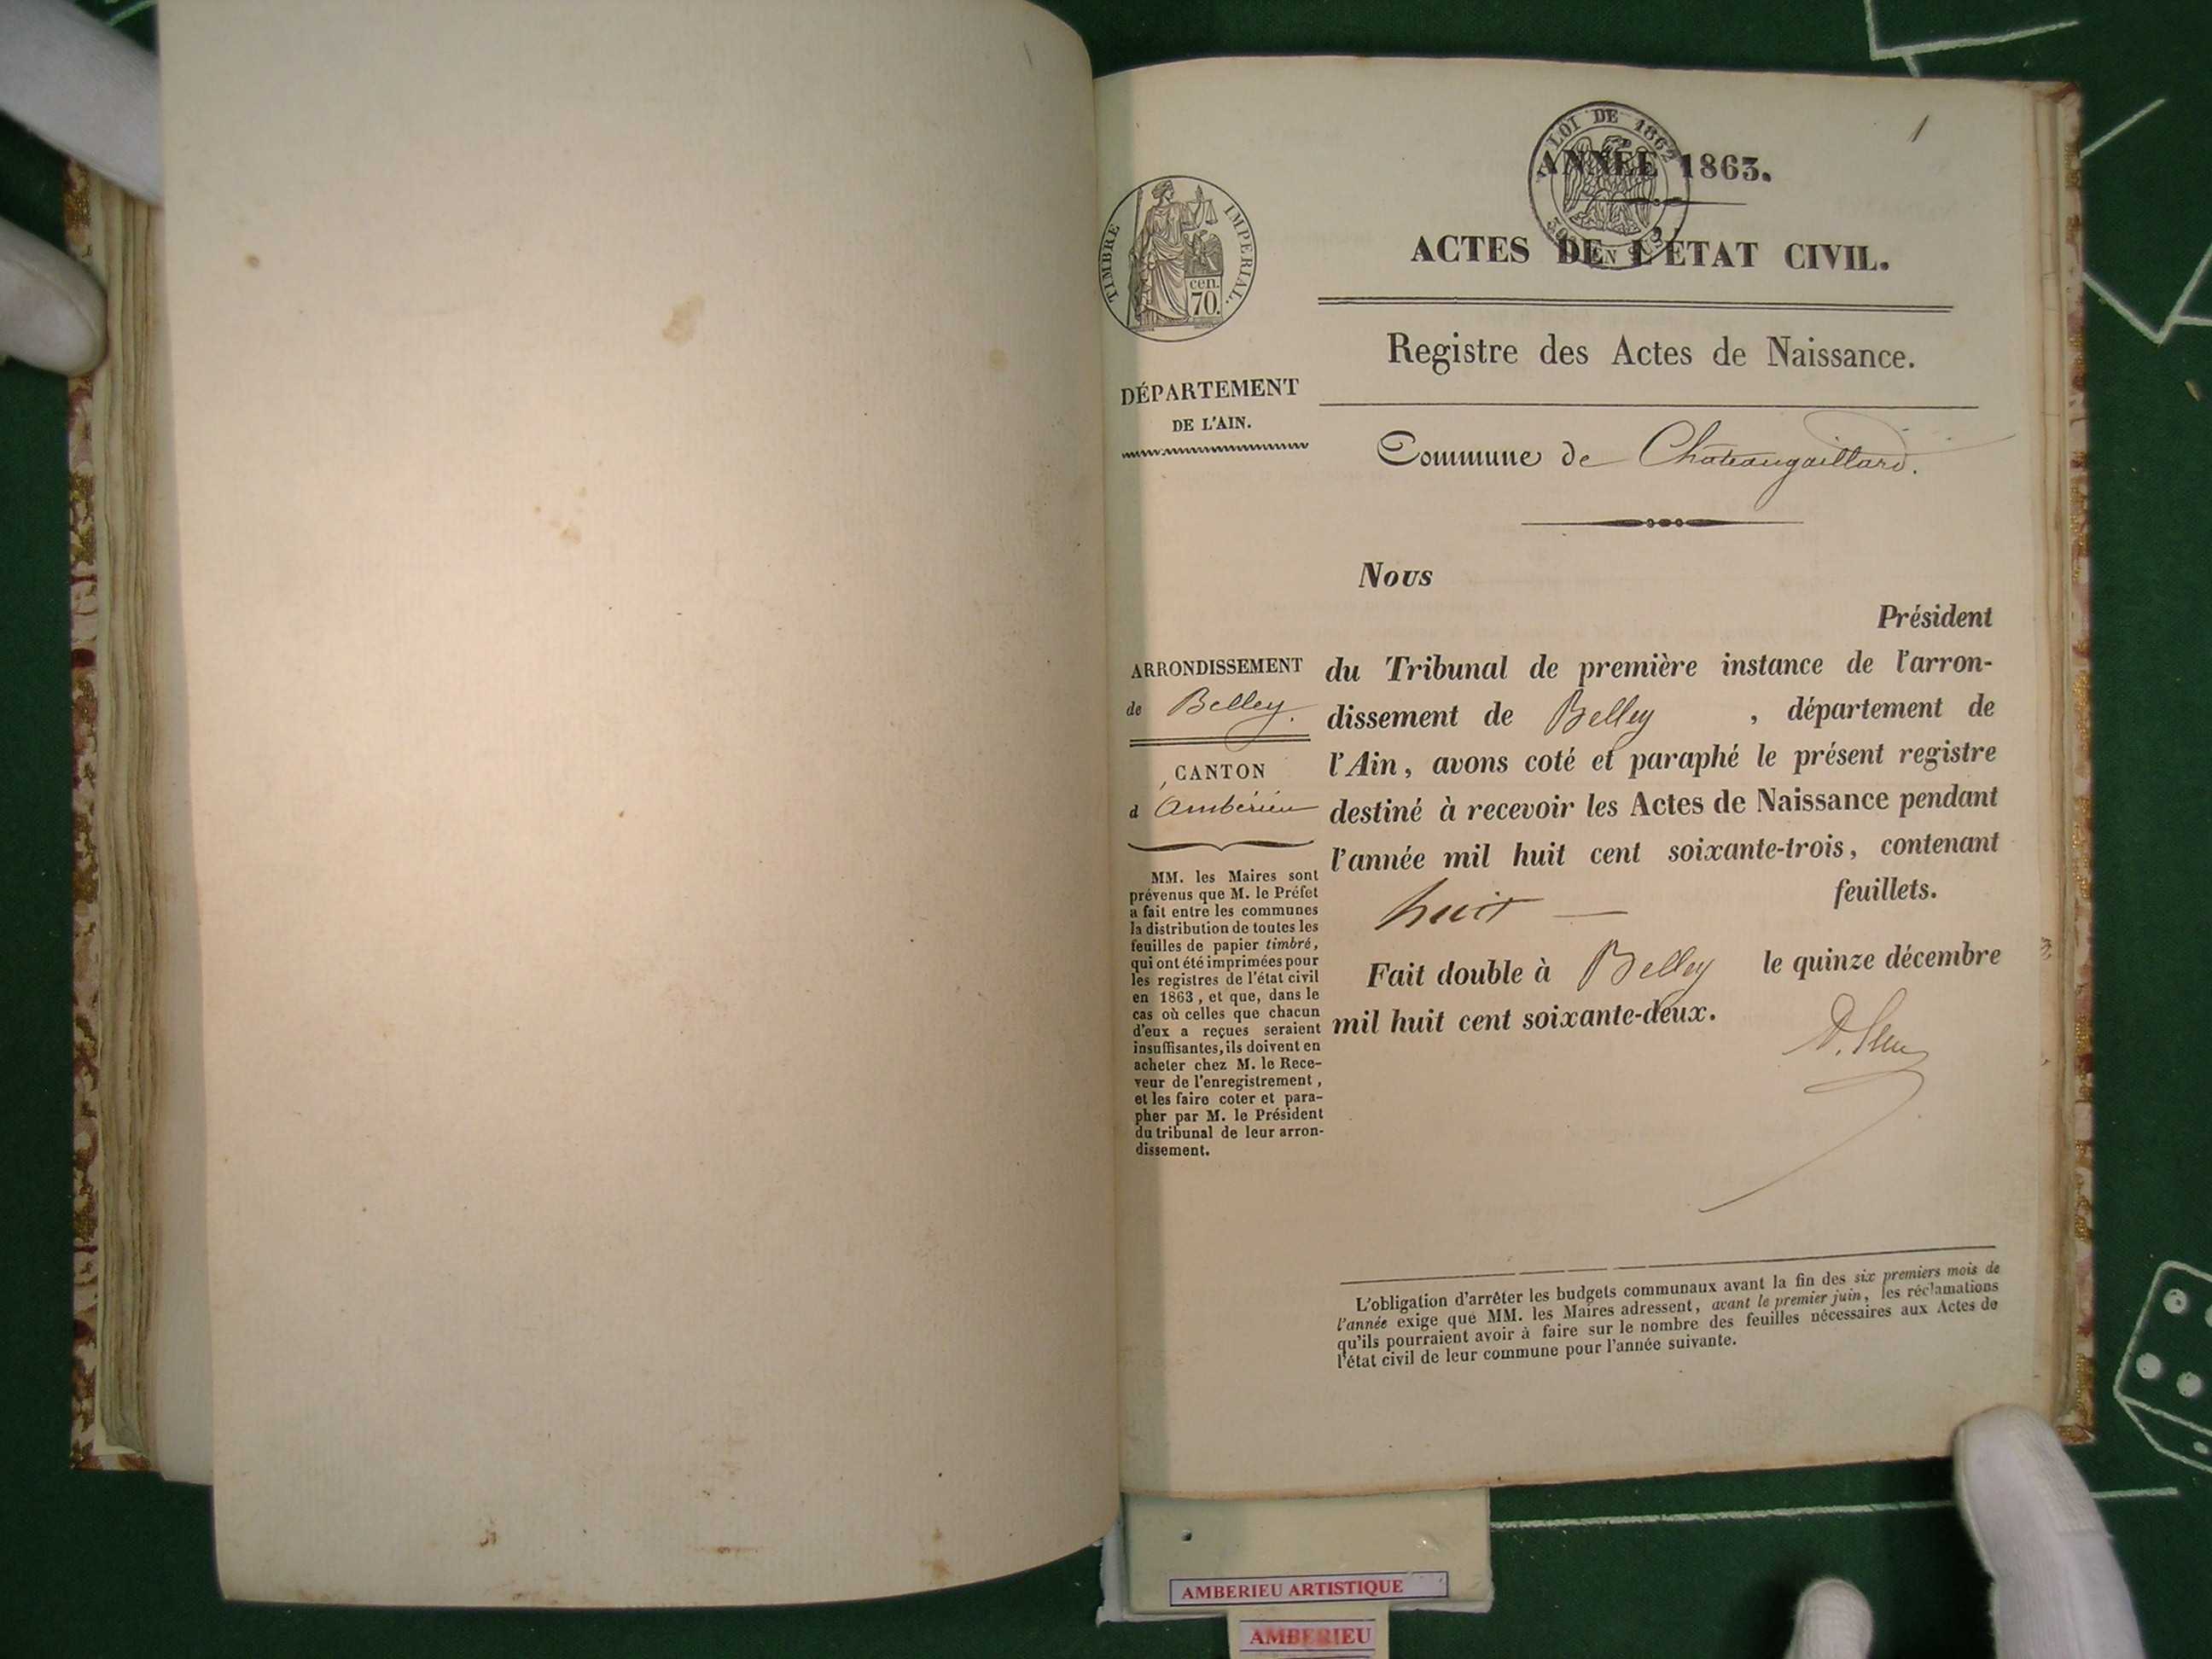 1
LOI DE 1862
ANNÉE 1863.
TIMBRE IMPERIAL.
cen.
70.
ACTES DE L'ÉTAT CIVIL.
Registre des Actes de Naissance.
DÉPARTEMENT
DE L'AIN.
Commune de Chateaugaillard.
Nous
Président
du Tribunal de première instance de l'arron-
dissement de Belley , département de
l'Ain, avons coté et paraphé le présent registre
destiné à recevoir les Actes de Naissance pendant
l'année mil huit cent soixante-trois, contenant
huit — feuillets.
Fait double à Belley le quinze décembre
mil huit cent soixante-deux.
ARRONDISSEMENT
de Belley.
CANTON
d'Ambérieu
MM. les Maires sont
prévenus que M. le Préfet
a fait entre les communes
la distribution de toutes les
feuilles de papier timbré,
qui ont été imprimées pour
les registres de l'état civil
en 1863, et que, dans le
cas où celles que chacun
d'eux a reçues seraient
insuffisantes, ils doivent en
acheter chez M. le Rece-
veur de l'enregistrement,
et les faire coter et para-
pher par M. le Président
du tribunal de leur arron-
dissement.
L'obligation d'arrêter les budgets communaux avant la fin des six premiers mois de
l'année exige que MM. les Maires adressent, avant le premier juin, les réclamations
qu'ils pourraient avoir à faire sur le nombre des feuilles nécessaires aux Actes de
l'état civil de leur commune pour l'année suivante.
AMBERIEU ARTISTIQUE
AMBERIEU